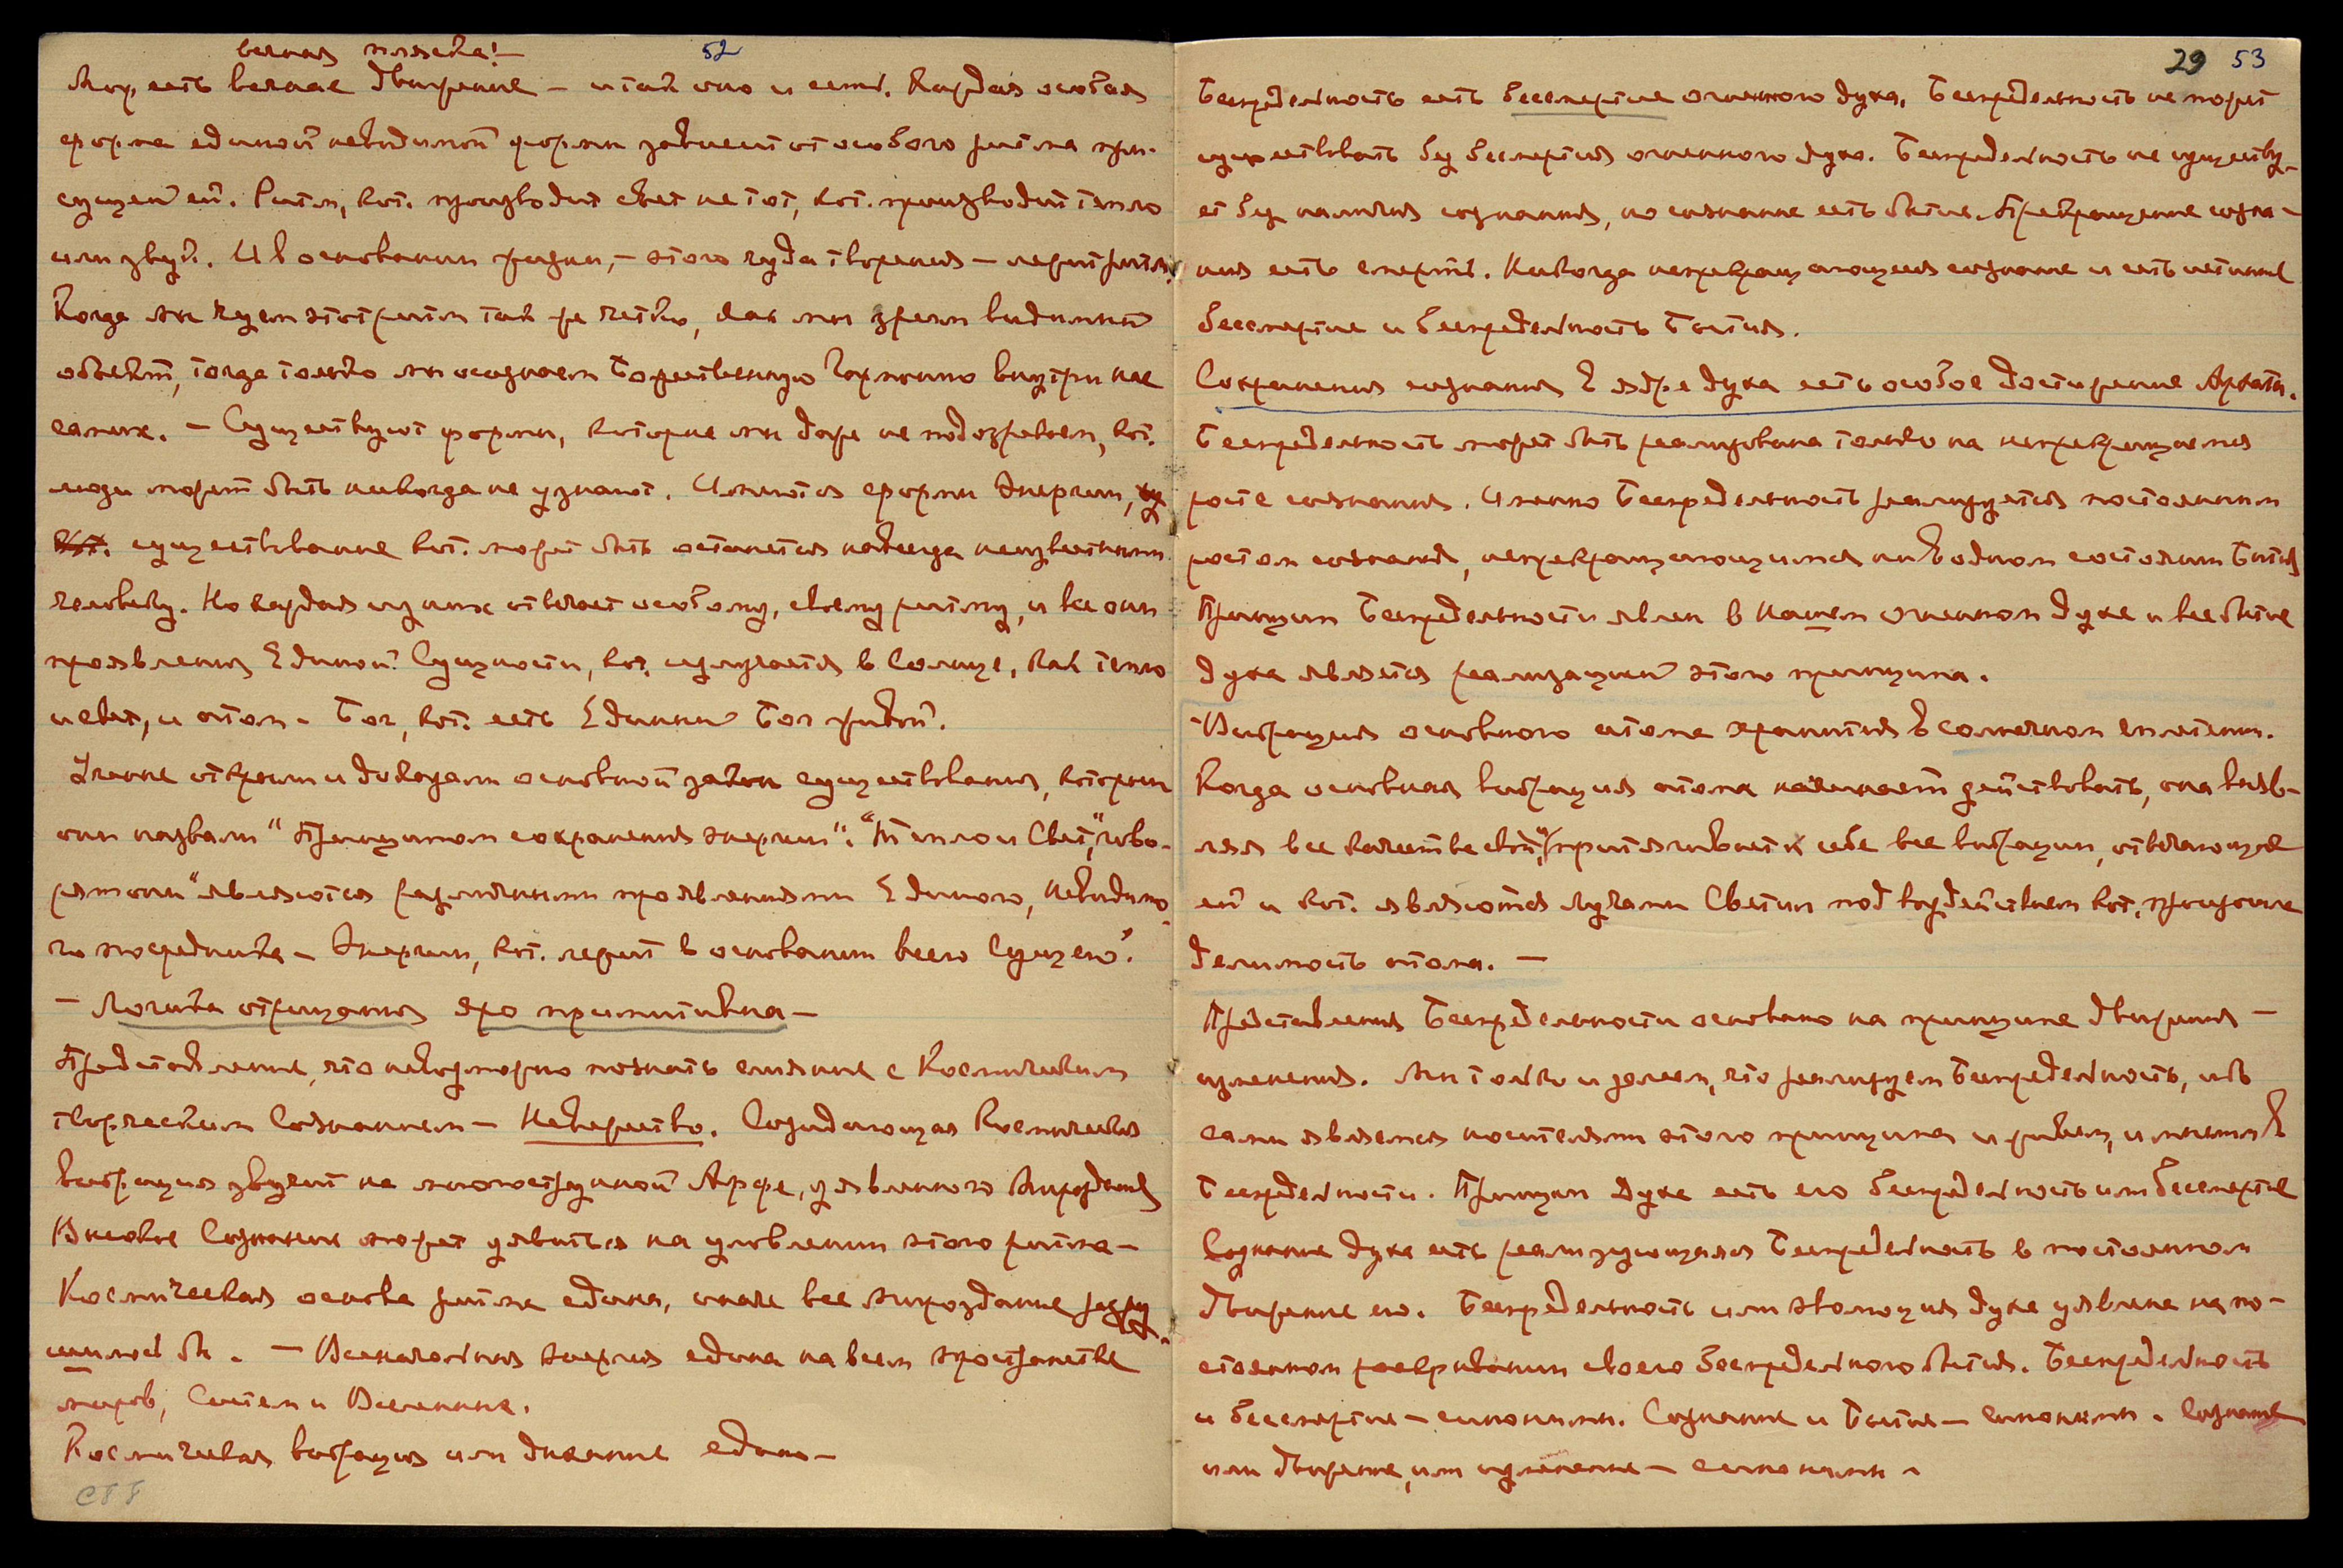 вечная пляска! –
52
Мир есть вечное движение – и так оно и есть. Каждая особая
форма единой невидимой формы зависит от особого ритма при-
сущей ей. Ритм, кот. производит свет не тот, кот. производит тепло
или звук. И в основании жизни, – этого чуда творения – лежит ритм.
Когда мы чуем этот ритм так же четко, как мы зрим видимый
объект, тогда только мы осознаем Божественную Гармонию внутри нас
самих. – Существуют формы, которые мы даже не подозреваем, кот.
люди может быть никогда не узнают. Имеются формы Энергии,
кот. существование кот. может быть останется навсегда неизвестным
человеку. Но каждая из них отвечает особому, своему ритму, и все они
проявления Единой Сущности, кот. излучается в Солнце, как тепло
и свет, и атом – Бог, кот. есть Единый Бог живой.
Ученые открыли и доказали основной закон существования, который
они назвали "Принципом сохранения энергии". "Тепло и Свет," гово-
рят они "являются различными проявлениями Единого, невидимо-
го посредника – Энергии, кот. лежит в основании всего Сущего".
– Логика отрицания яро примитивна –
Представление, что невозможно познать слияние с Космическим
творческим Сознанием – Невежество. Созидающая Космическая
вибрация звучит на многострунной Арфе, уявленного Мироздания
Высокое Сознание может уявиться на уловлении этого ритма –
Космическая основа ритма едина, иначе все мироздание разру
шилось бы. – Всеначальная энергия едина на всем пространстве
миров, Систем и Вселенных.
Космическая вибрация или дыхание едино –
С88
29 53
Беспредельность есть бессмертие огненного духа. Беспредельность не может
существовать без бессмертия огненного духа. Беспредельность не существу-
ет без наличия сознания, но сознание есть бытие. Прекращение созна-
ния есть смерть. Никогда непрекращающееся сознание и есть истинное
бессмертие и беспредельность Бытия.
Сохранение сознания в ядре духа есть особое достижение Архата.
Беспредельность может быть реализована только на непрекращаемом
росте сознания. Именно Беспредельность реализуется постоянным
ростом сознания, непрекращающимся ни в одном состоянии Бытия
Принцип Беспредельности явлен в нашем огненном духе и все бытие
духа является реализацией этого принципа.
– Вибрация основного атома хранится в солнечном сплетении.
Когда основная вибрация атома начинает действовать, она выяв-
ляя все качества свои, притягивает к себе все вибрации, отвечающие
ей и кот. являются лучами Светил под воздействием кот. произошла
делимость атома. –
Представление Беспредельности основано на принципе движения –
изменения. Мы только и делаем, что реализуем Беспредельность, ибо
сами являемся носителями этого принципа и живем, и меняемся в
Беспредельности. Принцип Духа есть его беспредельность или бессмертие
Сознание духа есть реализующаяся Беспредельность в постоянном
движении его. Беспредельность или эволюция духа уявлена на по-
стоянном раскрывании своего беспредельного бытия. Беспредельность
и бессмертие – синонимы. Сознание и Бытие – синонимы. Сознание
или движение, или изменение – синонимы –